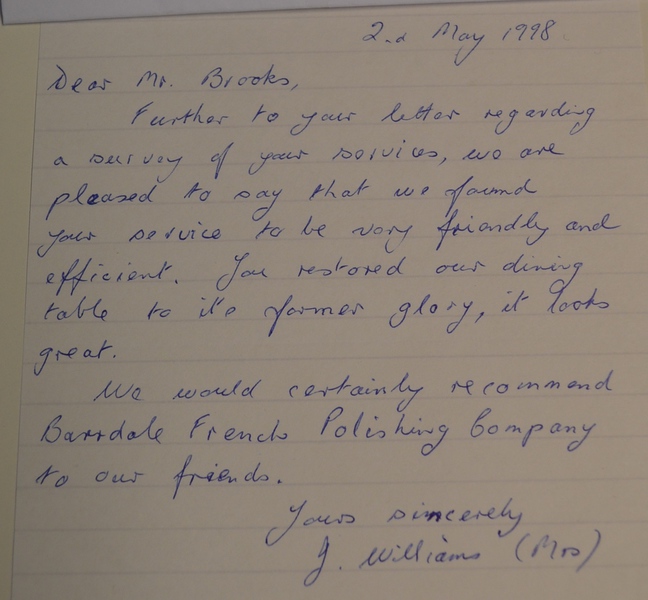 2nd May 1998
Dear Mr. Brooks,
Further to your letter regarding
a survey of your services, we are
pleased to say that we found
your service to be very friendly and
efficient. You restored our dining
table to it's former glory, it looks
great.
We would certainly recommend
Barrdale French Polishing Company
to our friends.
Yours sincerely
J. Williams (Mrs)